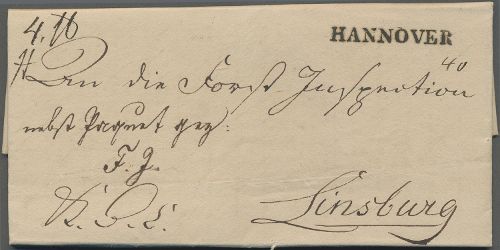 4. ℔
HANNOVER
An die Forst Inspection
40
nebst Paquet gez:
F. I.
Linsburg